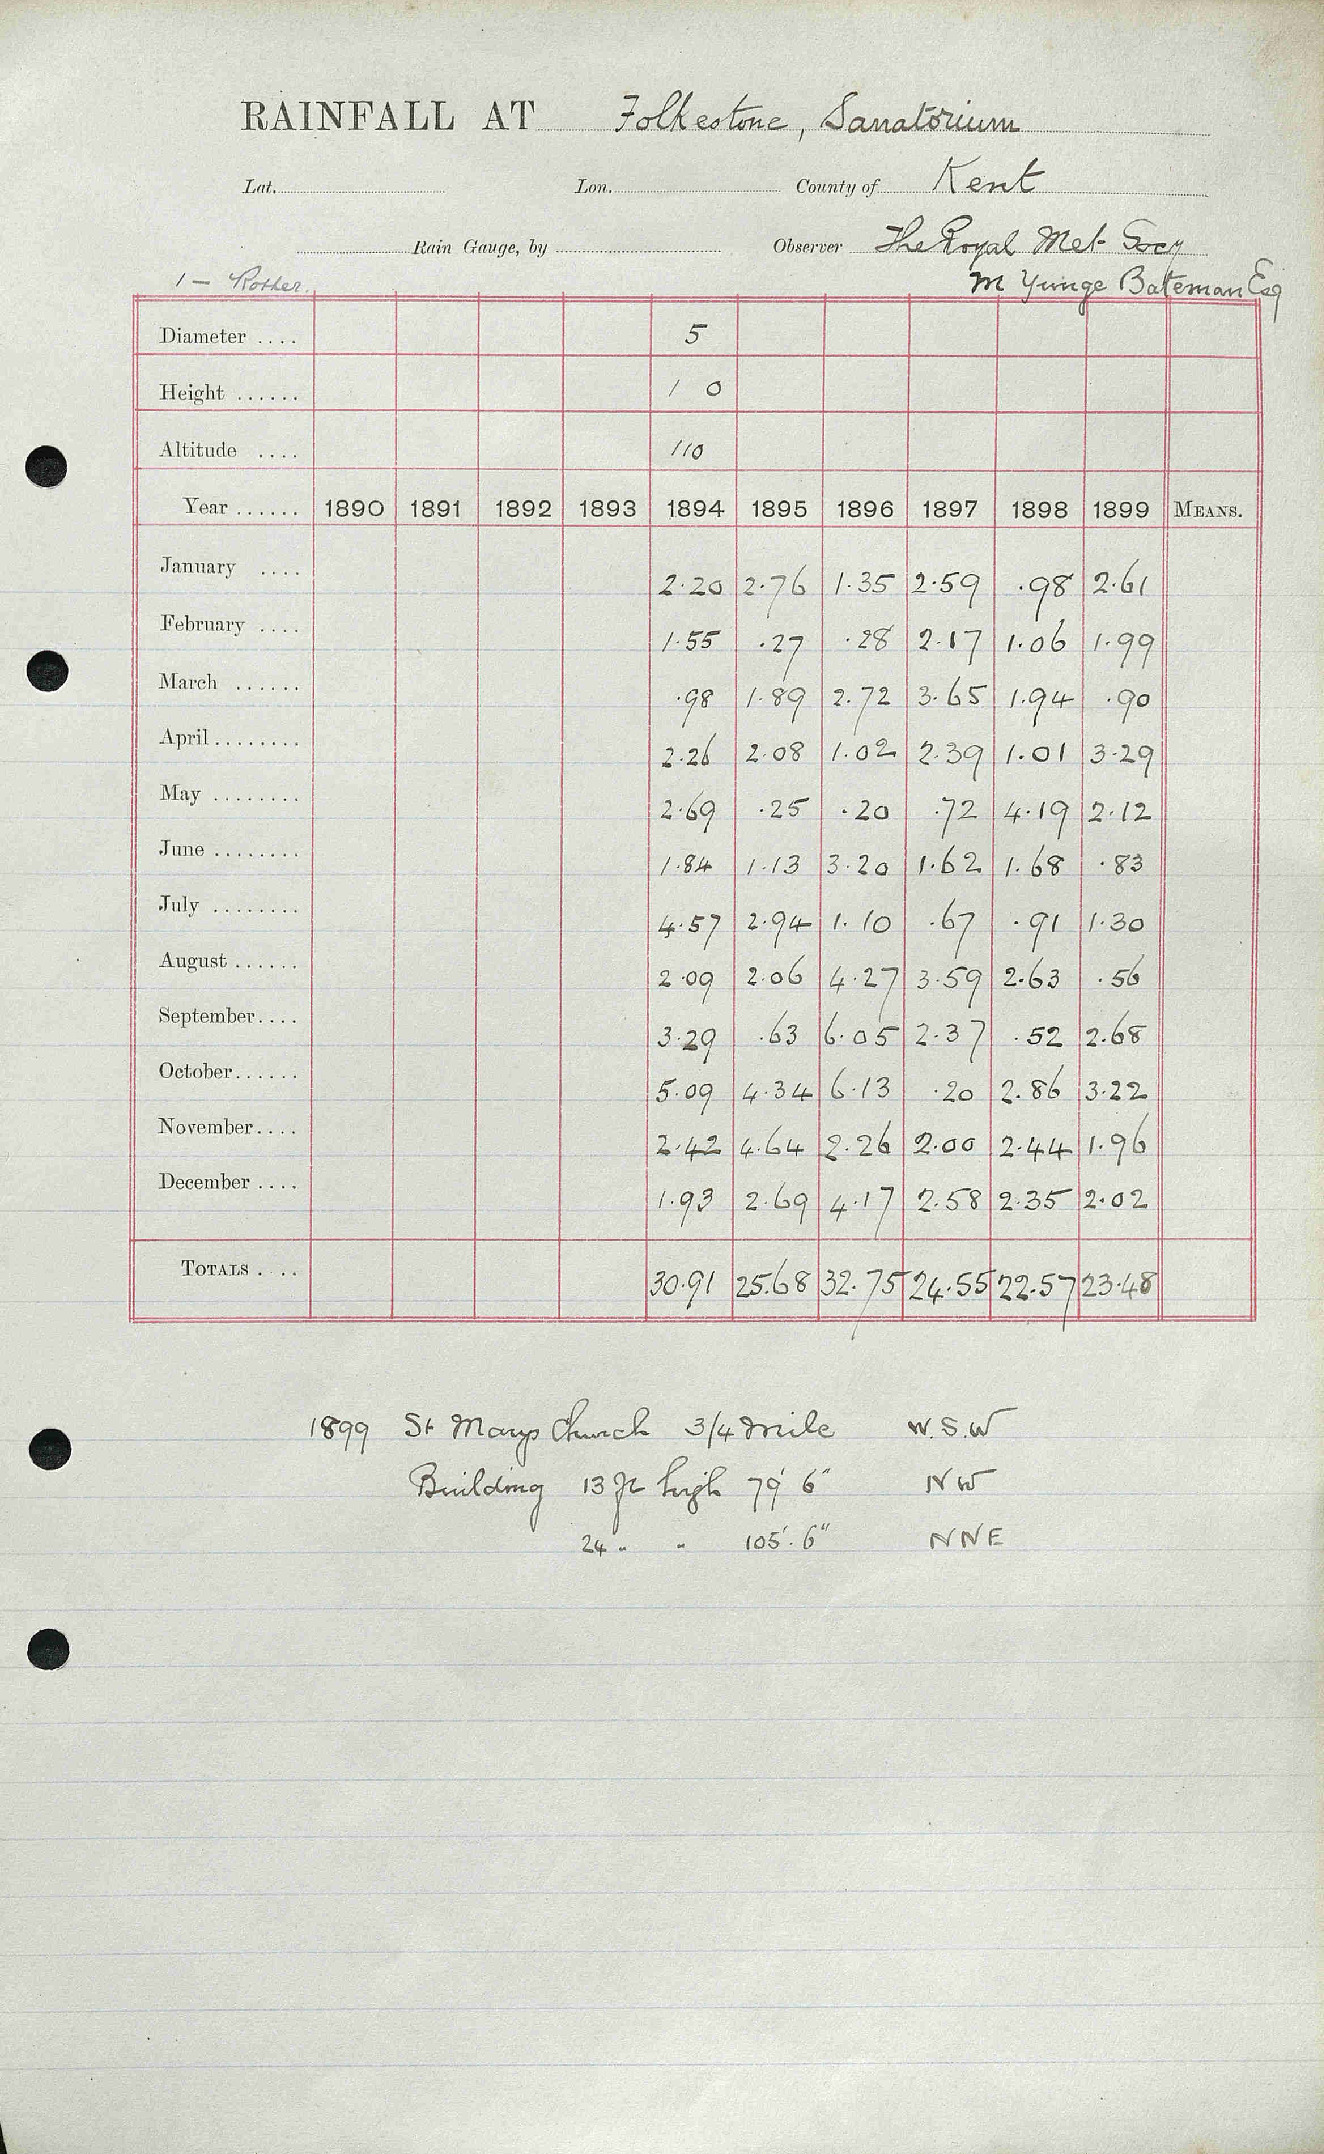 RAINFALL AT Folkestone, Sanatorium
Lat. Lon. County of Kent
Rain Gauge, by Observer The Royal Met Socy
1 — Rother. M Yunge Bateman Esq
Diameter .... 5
Height ...... 1 0
Altitude .... 110
Year ...... 1890 1891 1892 1893 1894 1895 1896 1897 1898 1899 MEANS.
January .... 2.20 2.76 1.35 2.59 .98 2.61
February .... 1.55 .27 .28 2.17 1.06 1.99
March ...... .98 1.89 2.72 3.65 1.94 .90
April ........ 2.26 2.08 1.02 2.39 1.01 3.29
May ........ 2.69 .25 .20 .72 4.19 2.12
June ........ 1.84 1.13 3.20 1.62 1.68 .83
July ........ 4.57 2.94 1.10 .67 .91 1.30
August ...... 2.09 2.06 4.27 3.59 2.63 .56
September.... 3.29 .63 6.05 2.37 .52 2.68
October...... 5.09 4.34 6.13 .20 2.86 3.22
November.... 2.42 4.64 2.26 2.00 2.44 1.96
December .... 1.93 2.69 4.17 2.58 2.35 2.02
TOTALS .... 30.91 25.68 32.75 24.55 22.57 23.48
1899 St Marys Church 3/4 mile W.S.W
Building 13 ft high 79' 6" NW
24 " " 105'. 6" NNE